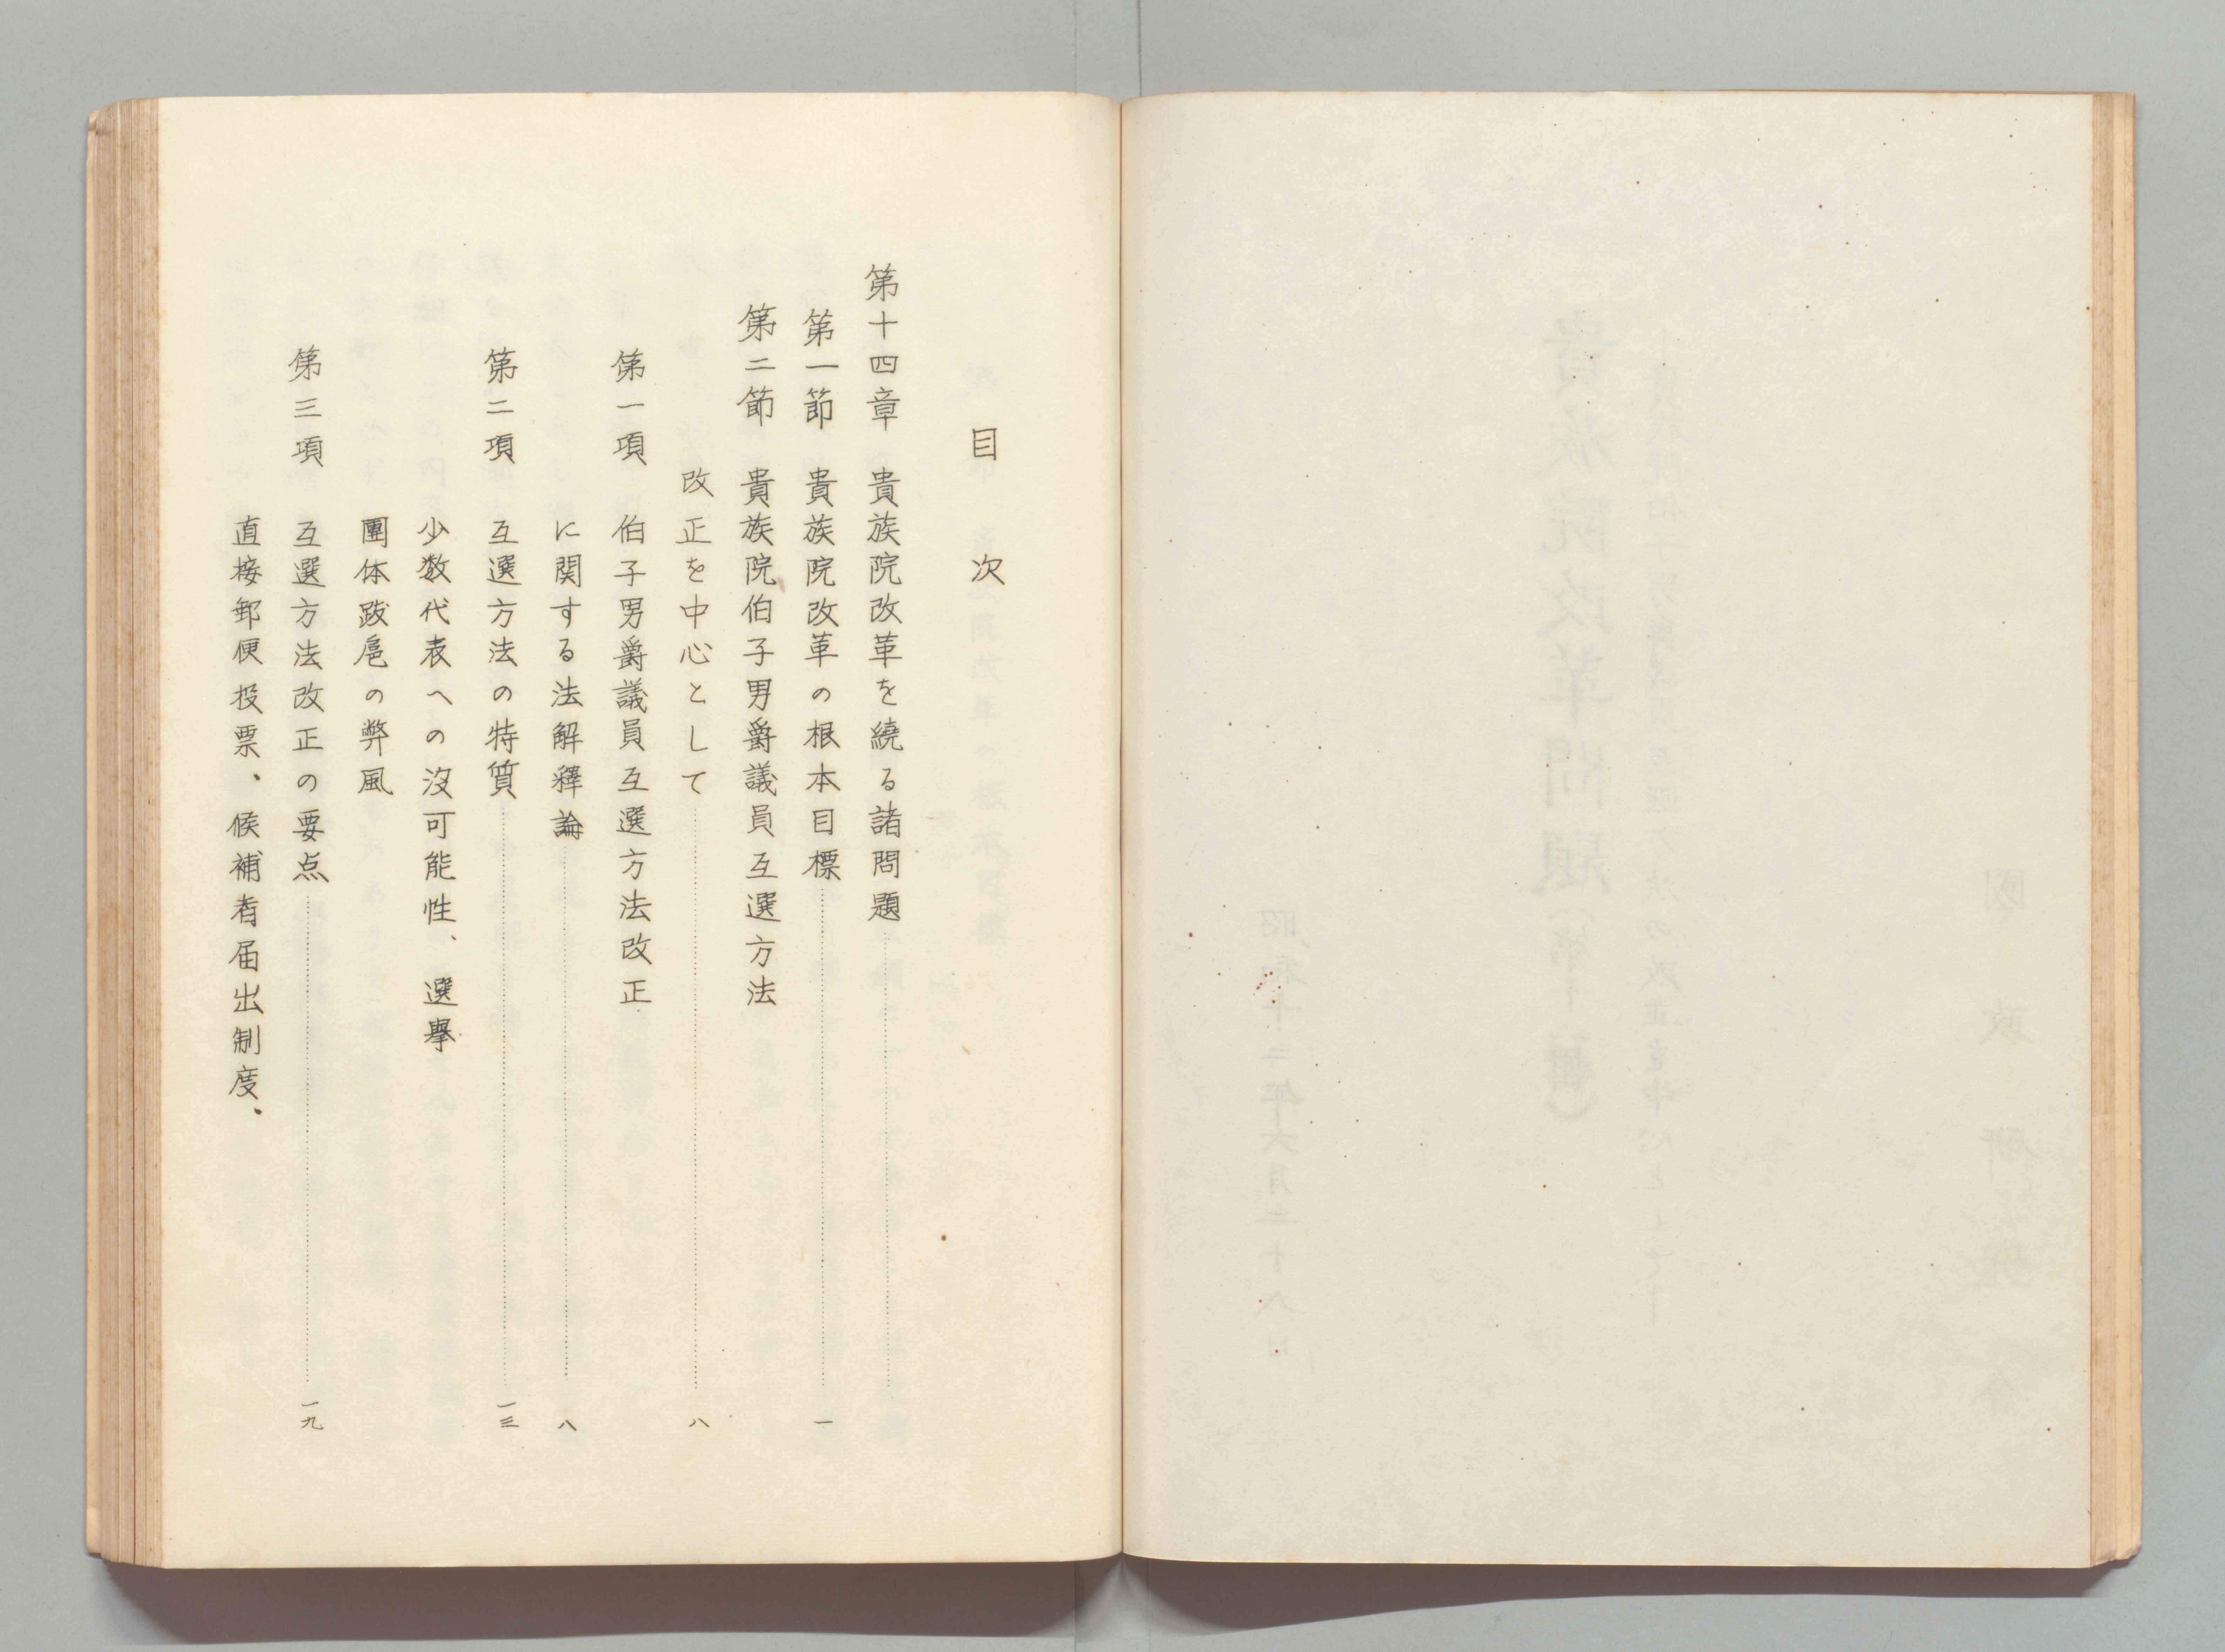 目次
第十四章 貴族院改革を繞る諸問題
第一節 貴族院改革の根本目標…………一
第二節 貴族院伯子男爵議員互選方法
改正を中心として…………八
第一項 伯子男爵議員互選方法改正
に関する法解釋論…………八
第二項 互選方法の特質…………一三
少数代表への没可能性、選擧
團体跋扈の弊風
第三項 互選方法改正の要点…………一九
直接郵便投票、候補者届出制度、